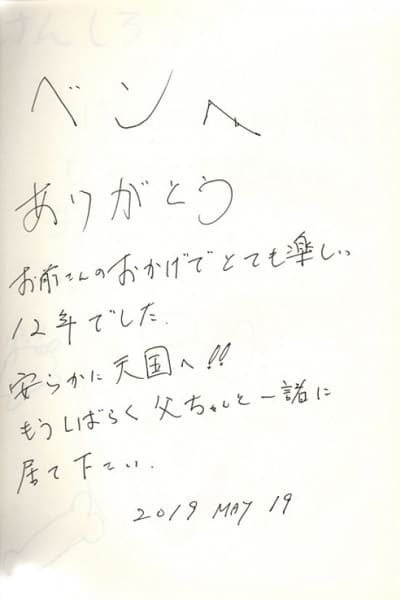 ベンへ
ありがとう
お前さんのおかげでとても楽しい
12年でした.
安らかに天国へ!!
もうしばらく父ちゃんと一諸に
居て下さい.
2019 MAY 19